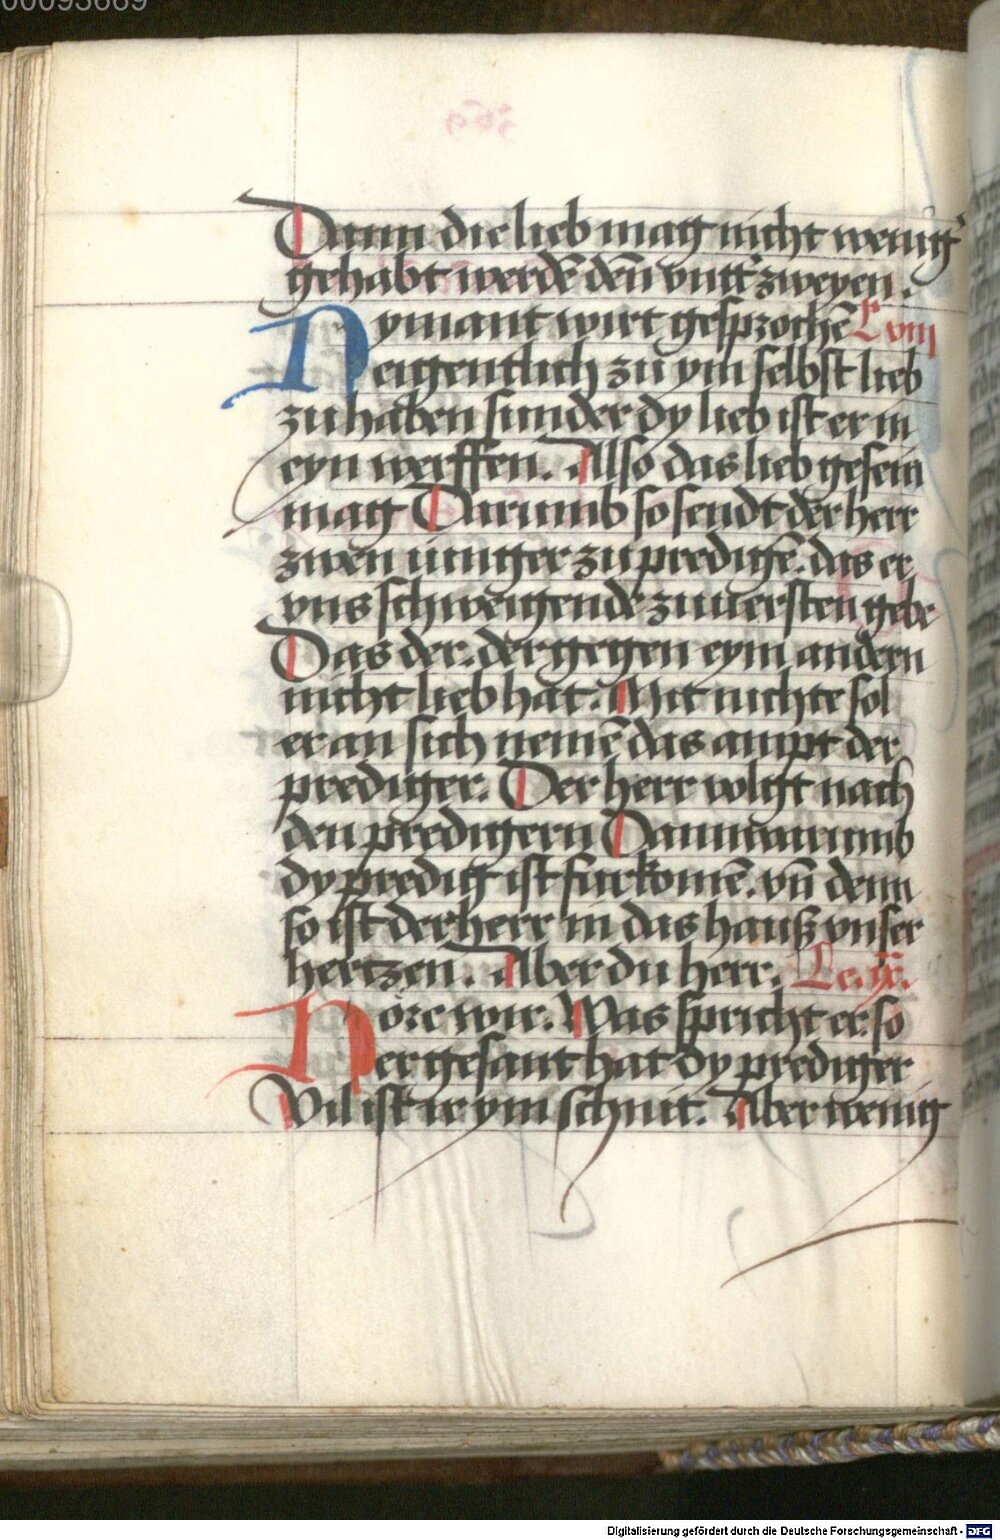 00093669
Dann die lieb mag nicht wenig͛
gehabt werdē deñ vntt͛ zweyen.
Nymant wirt gesprochē L viii
eigentlich zu ym selbst lieb
zu haben sunder dy lieb ist er in
eyn werffen. Allso das lieb gesein
mag Darumb so sendt der herr
zwen iunger zu predigē. das er
vns schweigende zuuersten gebe
Das der. der gegen eym andern
nicht lieb hat. Mit nichte sol
er an sich nemē das ampt der
prediger. Der herr volgt nach
den predigern Dann warumb
dy predig ist furkomē. vñ denn
so ist der herr in das hauß vnser
hertzen. Aber du herr. Le. ix.
Hore wir. Was spricht er. so
er gesant hat dy prediger
Vil ist ir ym schnit. Aber wenig
Digitalisierung gefördert durch die Deutsche Forschungsgemeinschaft - DFG